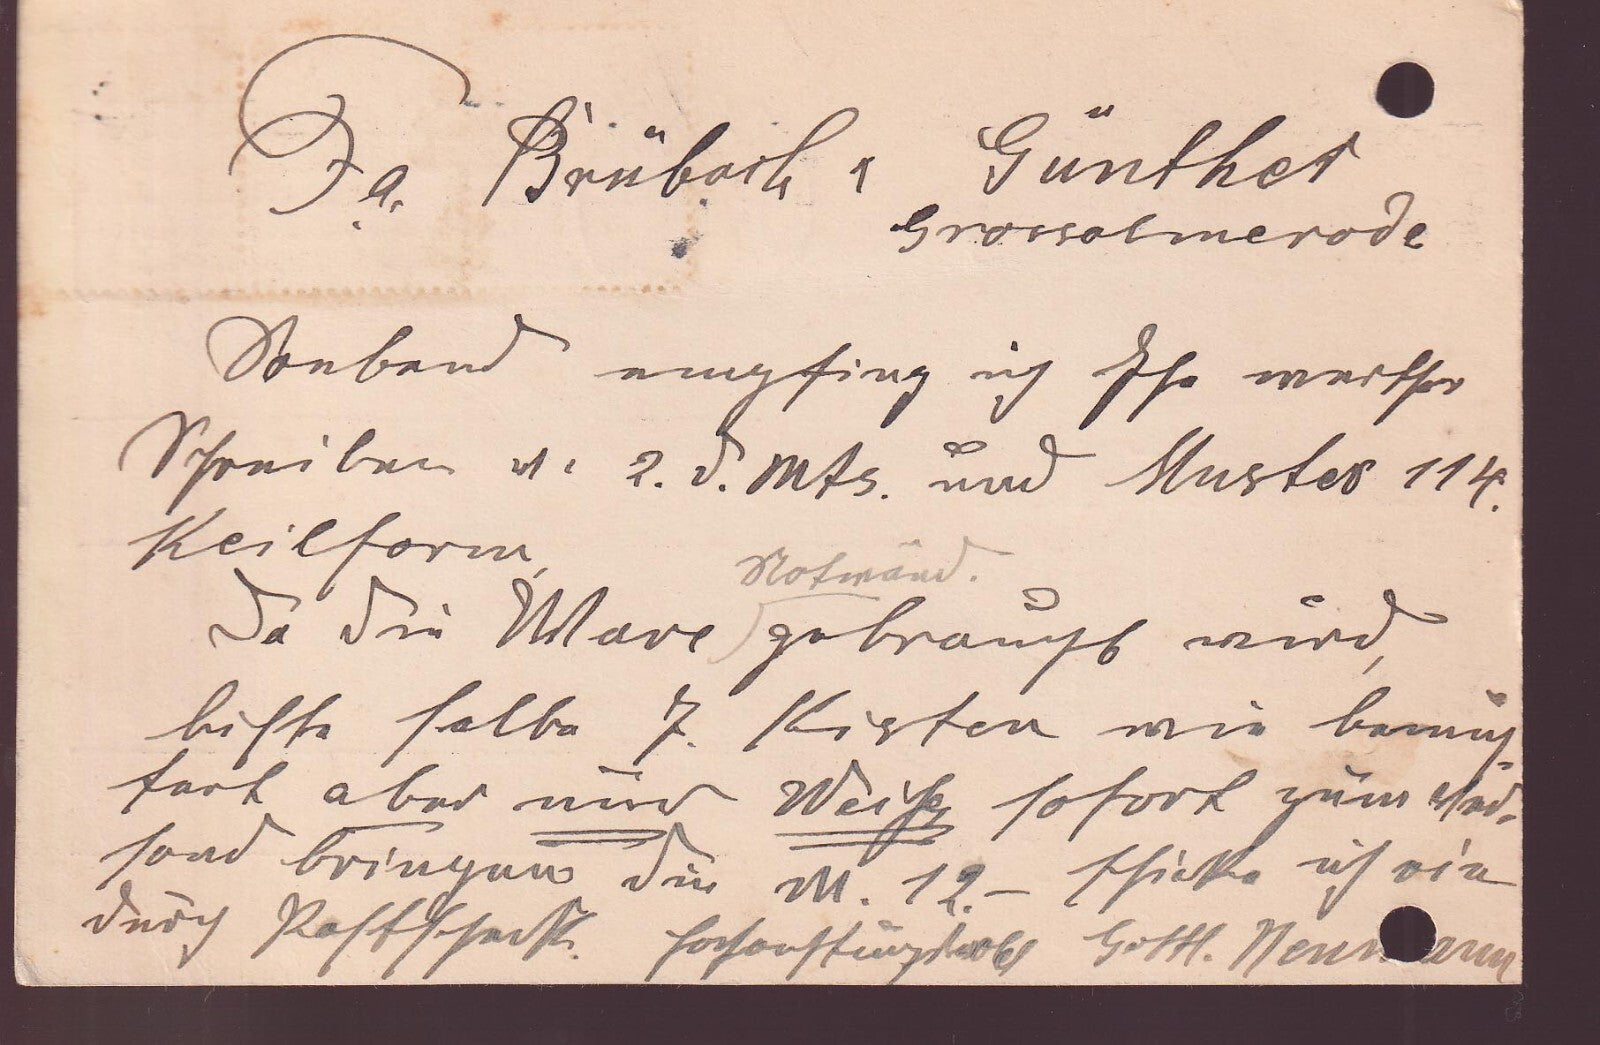 Fa. Brübach & Günther
Grossalmerode
Soeben empfing ich Ihr werthes
Schreiben v. 2. d. Mts. und Muster 114.
Keilform,
Notwend.
Da die Ware gebraucht wird,
bitte selbe 7. Kisten wie bemus
tert aber nur Weiße sofort zum Ver-
sand bringen die M. 12.- schicke ich ein
durch Postscheck. Hochachtungsvoll Gottl. Neumann